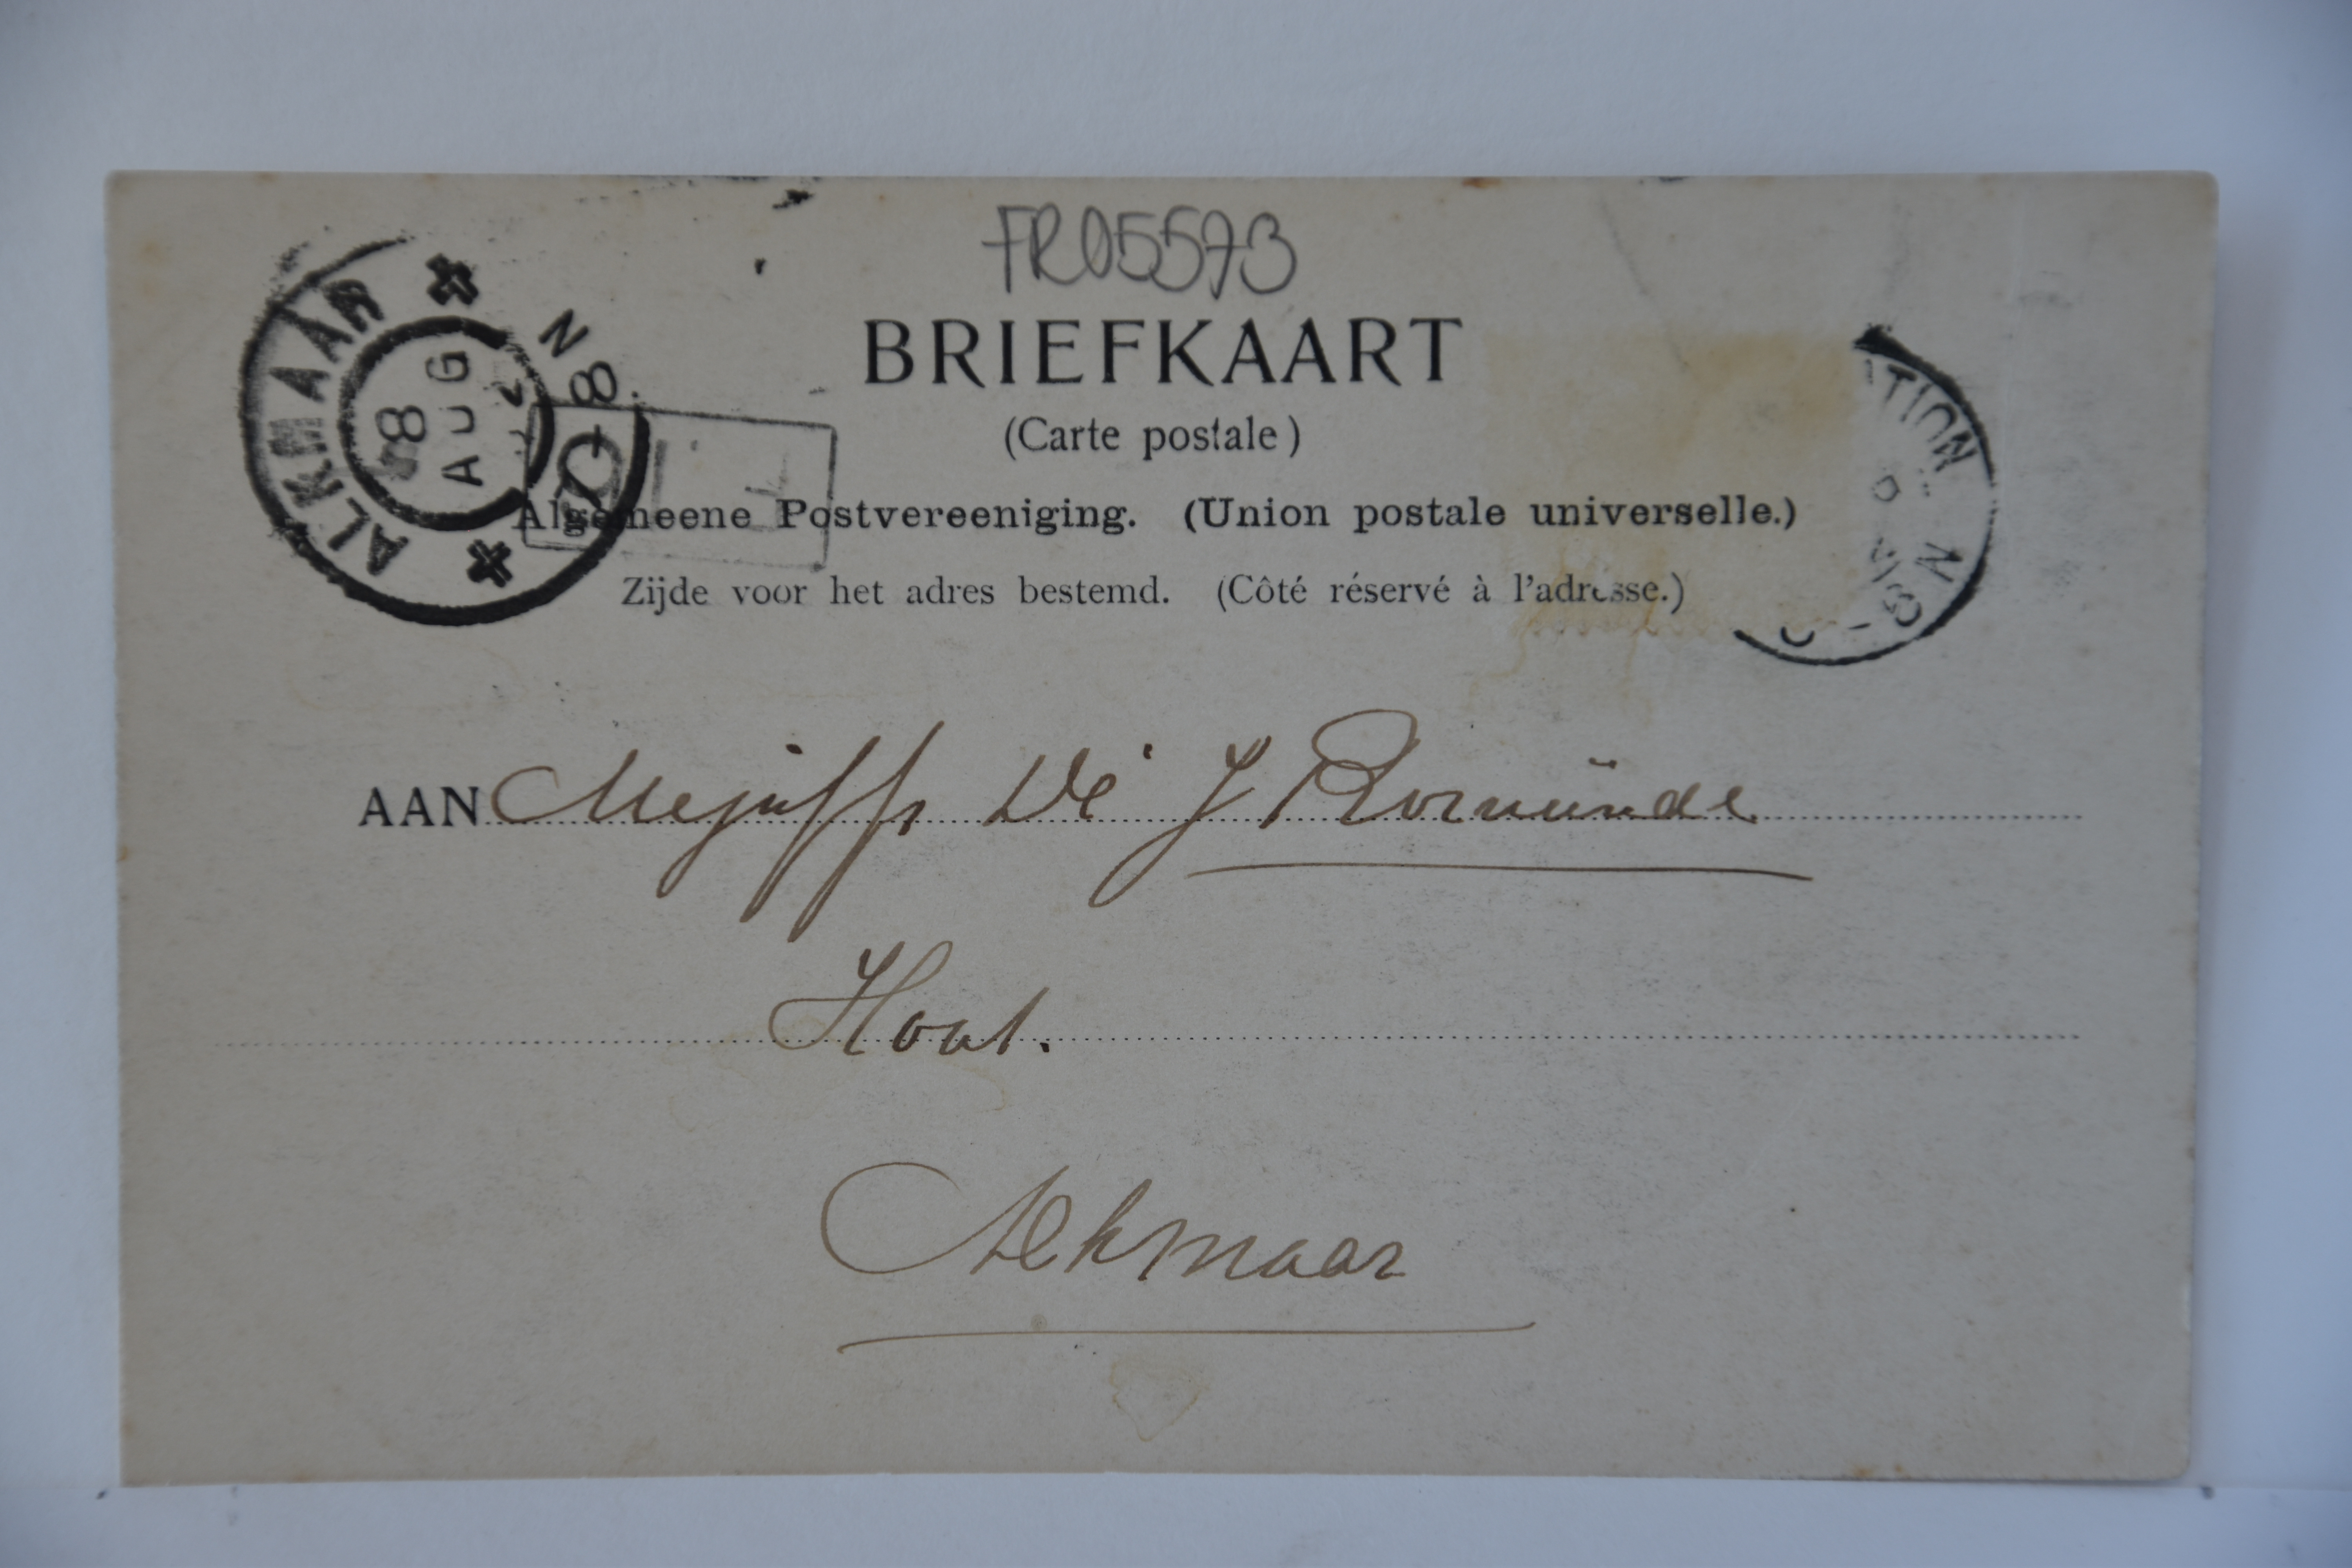 FR05573
BRIEFKAART
(Carte postale)
Algemeene Postvereeniging. (Union postale universelle.)
Zijde voor het adres bestemd. (Côté réservé à l'adresse.)
ALKMAAR
8
AUG
N
8
AAN Mejuffr De J
Hout.
Alkmaar